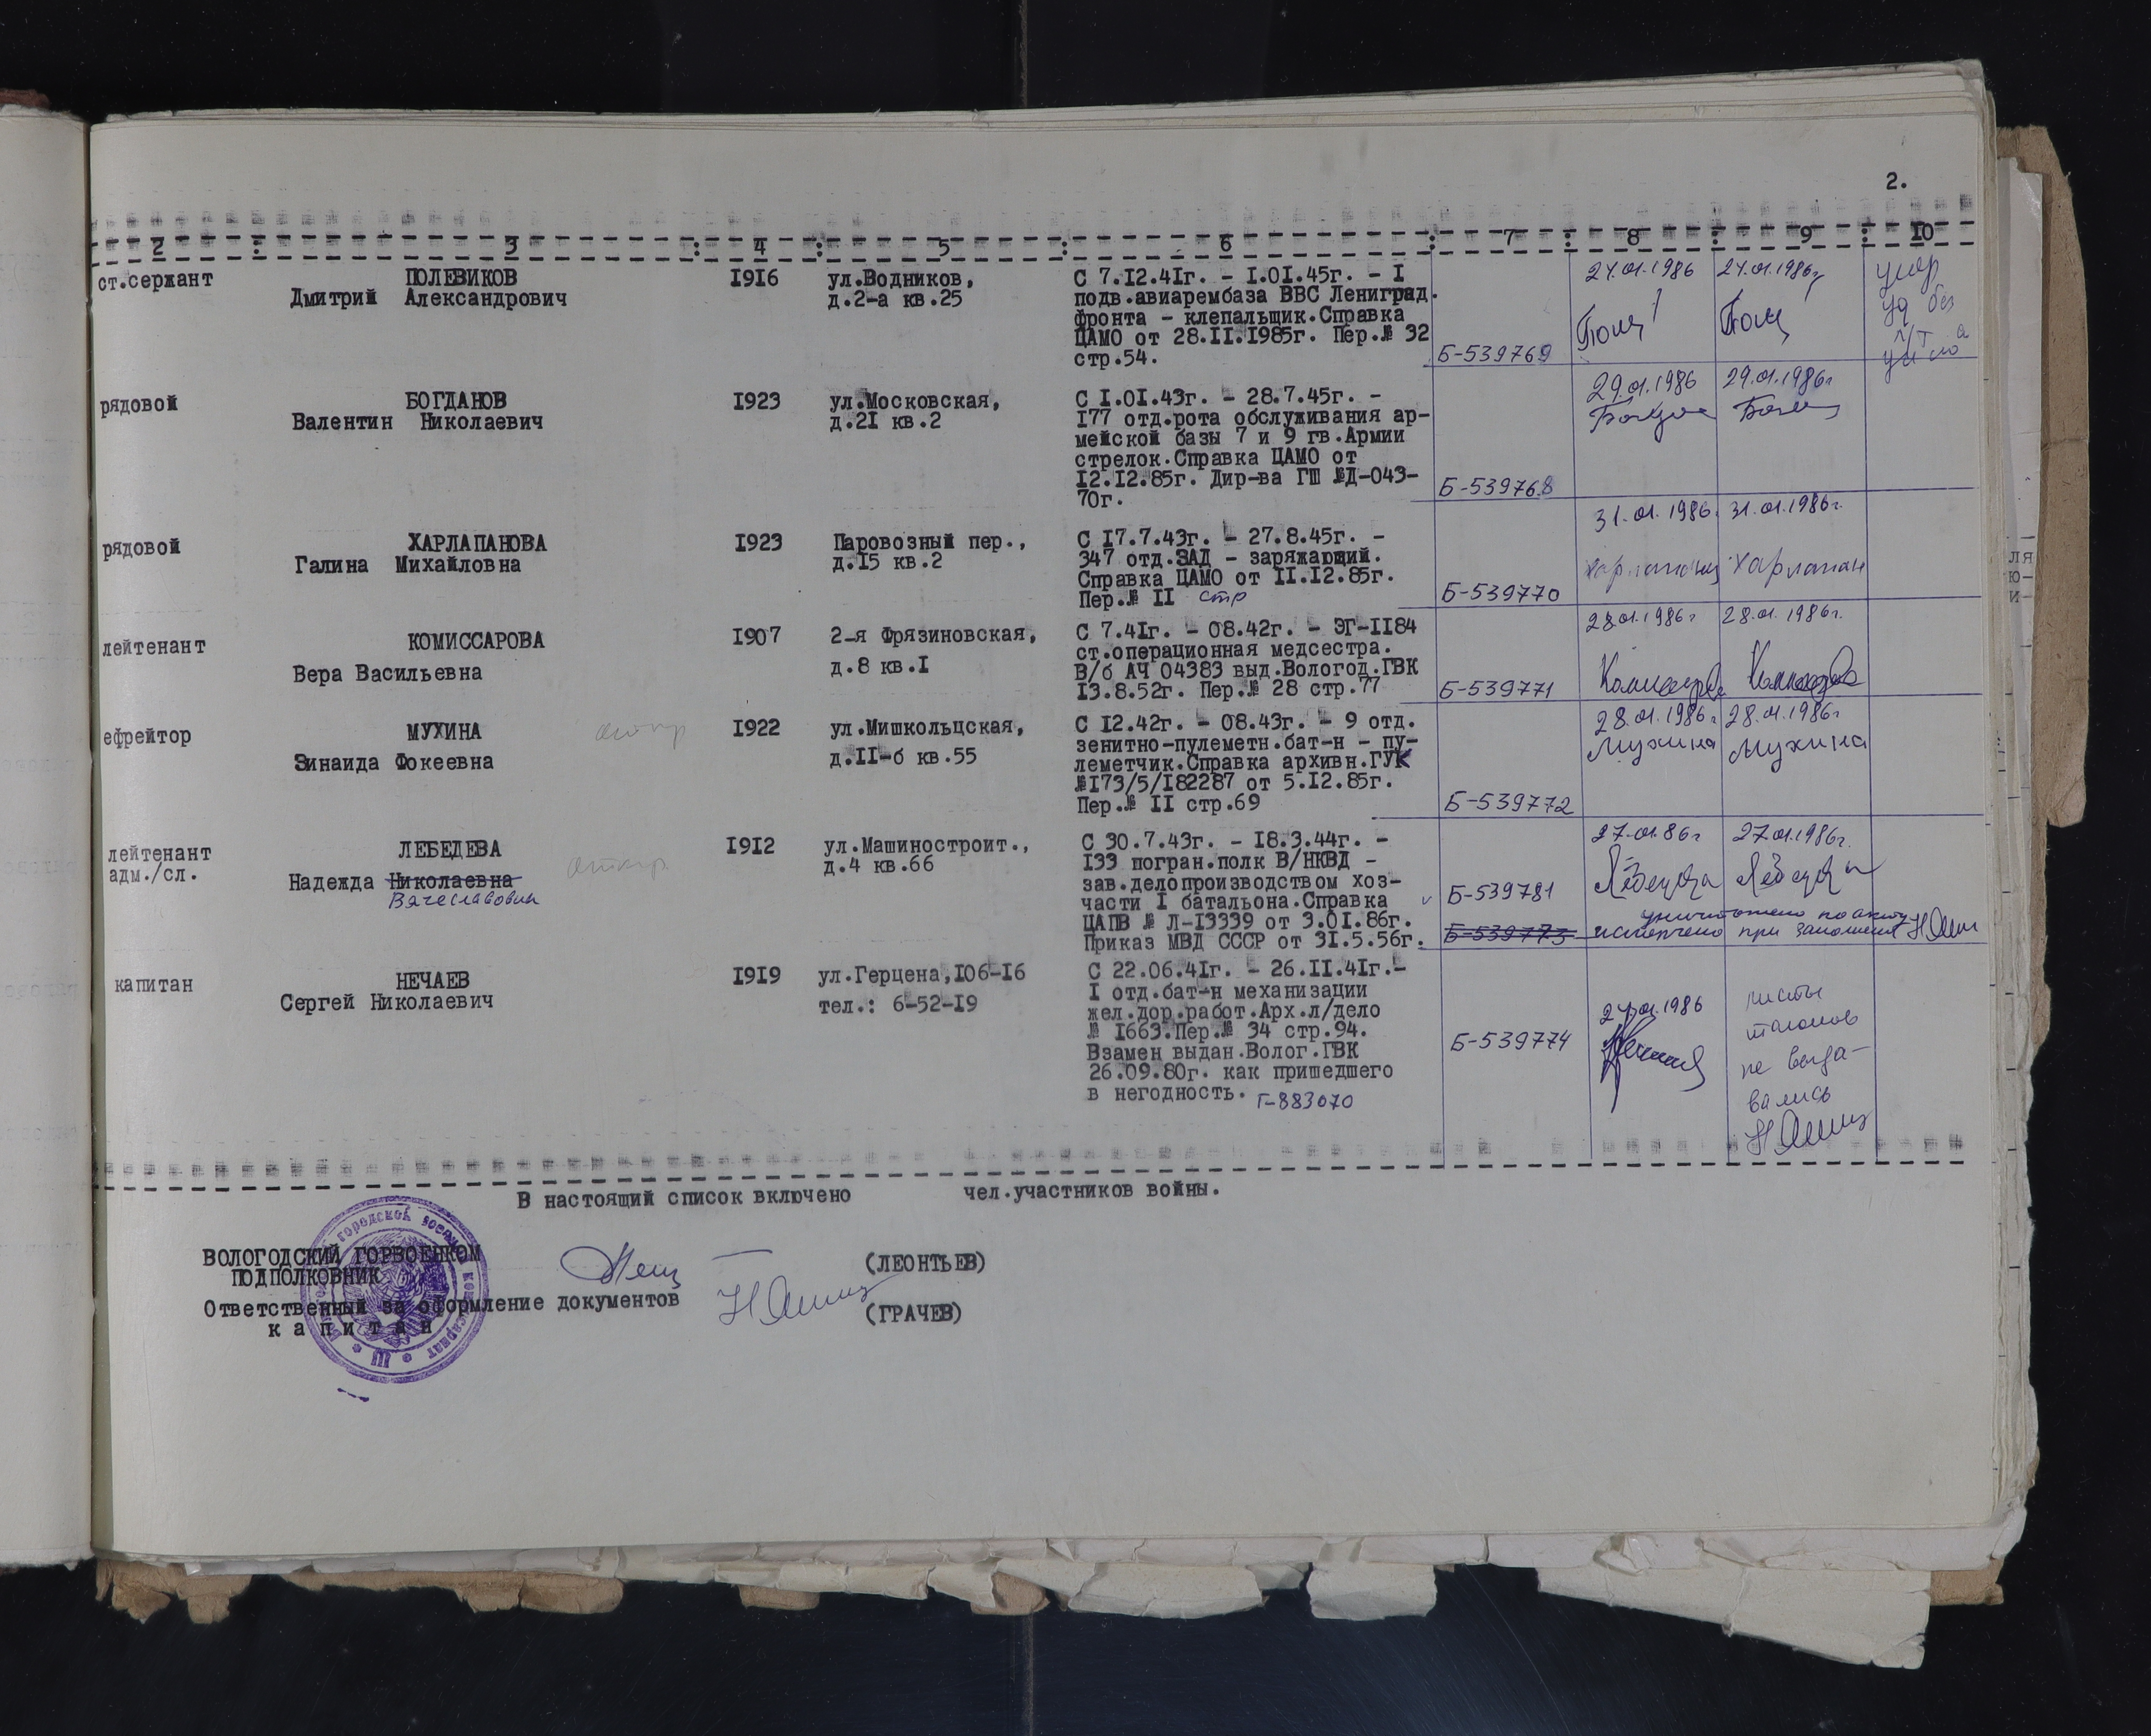 2.
2 : 3 : 4 : 5 : 6 : 7 : 8 : 9 : 10
ст.сержант ПОЛЕВИКОВ 1916 ул.Водников, С 7.12.41г. - 1.01.45г. - I 24.01.1986 24.01.1986г умер
Дмитрий Александрович д.2-а кв.25 подв.авиарембаза ВВС Ленинград. уд без
фронта - клепальщик.Справка
ЦАМО от 28.11.1985г. Пер.№ 32
стр.54. Б-539769
рядовой БОГДАНОВ 1923 ул.Московская, С 1.01.43г. - 28.7.45г. - 29.01.1986 29.01.1986г
Валентин Николаевич д.21 кв.2 177 отд.рота обслуживания ар-
мейской базы 7 и 9 гв.Армии
стрелок.Справка ЦАМО от
12.12.85г. Дир-ва ГШ №Д-043-
70г. Б-539768
рядовой ХАРЛАПАНОВА 1923 Паровозный пер., С 17.7.43г. - 27.8.45г. - 31.01.1986г 31.01.1986г.
Галина Михайловна д.15 кв.2 347 отд.ЗАД - заряжающий. Харлапан
Справка ЦАМО от 11.12.85г.
Пер.№ II стр Б-539770
лейтенант КОМИССАРОВА 1907 2-я Фрязиновская, С 7.41г. - 08.42г. - ЭГ-1184 28.01.1986г 28.01.1986г.
ст.операционная медсестра.
Вера Васильевна д.8 кв.I В/б АЧ 04383 выд.Вологод.ГВК
13.8.52г. Пер.№ 28 стр.77 Б-539771
ефрейтор МУХИНА 1922 ул.Мишкольцская, С 12.42г. - 08.43г. - 9 отд. 28.01.1986г 28.01.1986г
зенитно-пулеметн.бат-н - пу- Мухина Мухина
Зинаида Фокеевна д.II-б кв.55 леметчик.Справка архивн.ГУК
№173/5/182287 от 5.12.85г.
Пер.№ II стр.69 Б-539772
лейтенант ЛЕБЕДЕВА 1912 ул.Машиностроит., С 30.7.43г. - 18.3.44г. - 27.01.86г 27.01.1986г.
адм./сл. д.4 кв.66 133 погран.полк В/НКВД -
Надежда Николаевна зав.делопроизводством хоз-
Вячеславовна части I батальона.Справка Б-539781
ЦАПВ № Л-13339 от 3.01.86г. уничтожено по акту
Приказ МВД СССР от 31.5.56г. Б-539773 испорчено при заполнении
капитан НЕЧАЕВ 1919 ул.Герцена,106-16 С 22.06.41г. - 26.11.41г.-
Сергей Николаевич тел.: 6-52-19 I отд.бат-н механизации листы
жел.дор.работ.Арх.л/дело 24.01.1986 талонов
№ 1663.Пер.№ 34 стр.94. Б-539774
Взамен выдан.Волог.ГВК не выда-
26.09.80г. как пришедшего
в негодность. Г-883070 вались
В настоящий список включено чел.участников войны.
ВОЛОГОДСКИЙ ГОРВОЕНКОМ (ЛЕОНТЬЕВ)
ПОДПОЛКОВНИК
Ответственный за оформление документов
капитан (ГРАЧЕВ)